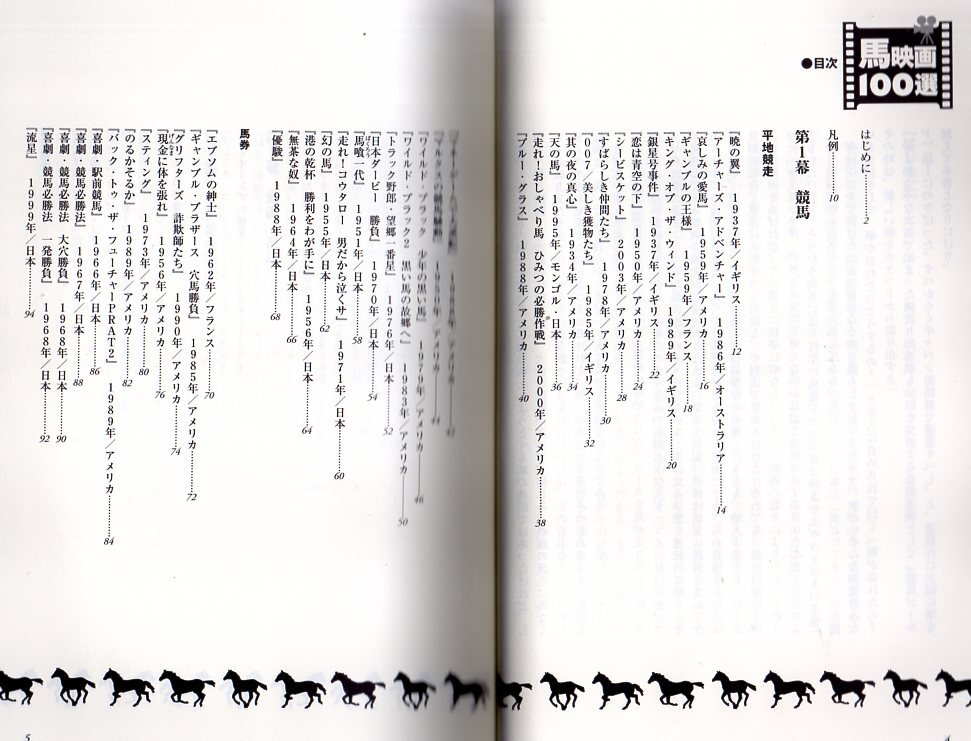 馬映画
100選
●目次
はじめに………2
凡例………10
第1幕 競馬
平地競走
『暁の翼』 1937年/イギリス………12
『アーチャーズ・アドベンチャー』 1986年/オーストラリア………14
『哀しみの愛馬』 1959年/アメリカ………16
『ギャンブルの王様』 1959年/フランス………18
『キング・オブ・ザ・ウィンド』 1989年/イギリス………20
『銀星号事件』 1937年/イギリス………22
『恋は青空の下』 1950年/アメリカ………24
『シービスケット』 2003年/アメリカ………28
『すばらしき仲間たち』 1978年/アメリカ………30
『007/美しき獲物たち』 1985年/イギリス………32
『其の夜の真心』 1934年/アメリカ………34
『天の馬』 1995年/モンゴル・日本………36
『走れ!おしゃべり馬 ひみつの必勝作戦』 2000年/アメリカ………38
『ブルー・グラス』 1988年/アメリカ………40
『マルクスの競馬騒動』
『ワイルド・ブラック 少年の黒い馬』 1979年/アメリカ………46
『ワイルド・ブラック2 黒い馬の故郷へ』 1983年/アメリカ………50
『トラック野郎・望郷一番星』 1976年/日本………52
『日本ダービー 勝負』 1970年/日本………54
『馬喰一代』 1951年/日本………58
『走れ!コウタロー 男だから泣くサ』 1971年/日本………60
『幻の馬』 1955年/日本………62
『港の乾杯 勝利をわが手に』 1956年/日本………64
『無茶な奴』 1964年/日本………66
『優駿』 1988年/日本………68
馬券
『エプソムの紳士』 1962年/フランス………70
『ギャンブル・ブラザース 穴馬勝負』 1985年/アメリカ………72
『グリフターズ 詐欺師たち』 1990年/アメリカ………74
『現金に体を張れ』 1956年/アメリカ………76
『スティング』 1973年/アメリカ………80
『のるかそるか』 1989年/アメリカ………82
『バック・トゥ・ザ・フューチャーPRAT2』 1989年/アメリカ………84
『喜劇・駅前競馬』 1966年/日本………86
『喜劇・競馬必勝法』 1967年/日本………88
『喜劇・競馬必勝法 大穴勝負』 1968年/日本………90
『喜劇・競馬必勝法 一発勝負』 1968年/日本………92
『流星』 1999年/日本………94
5
4